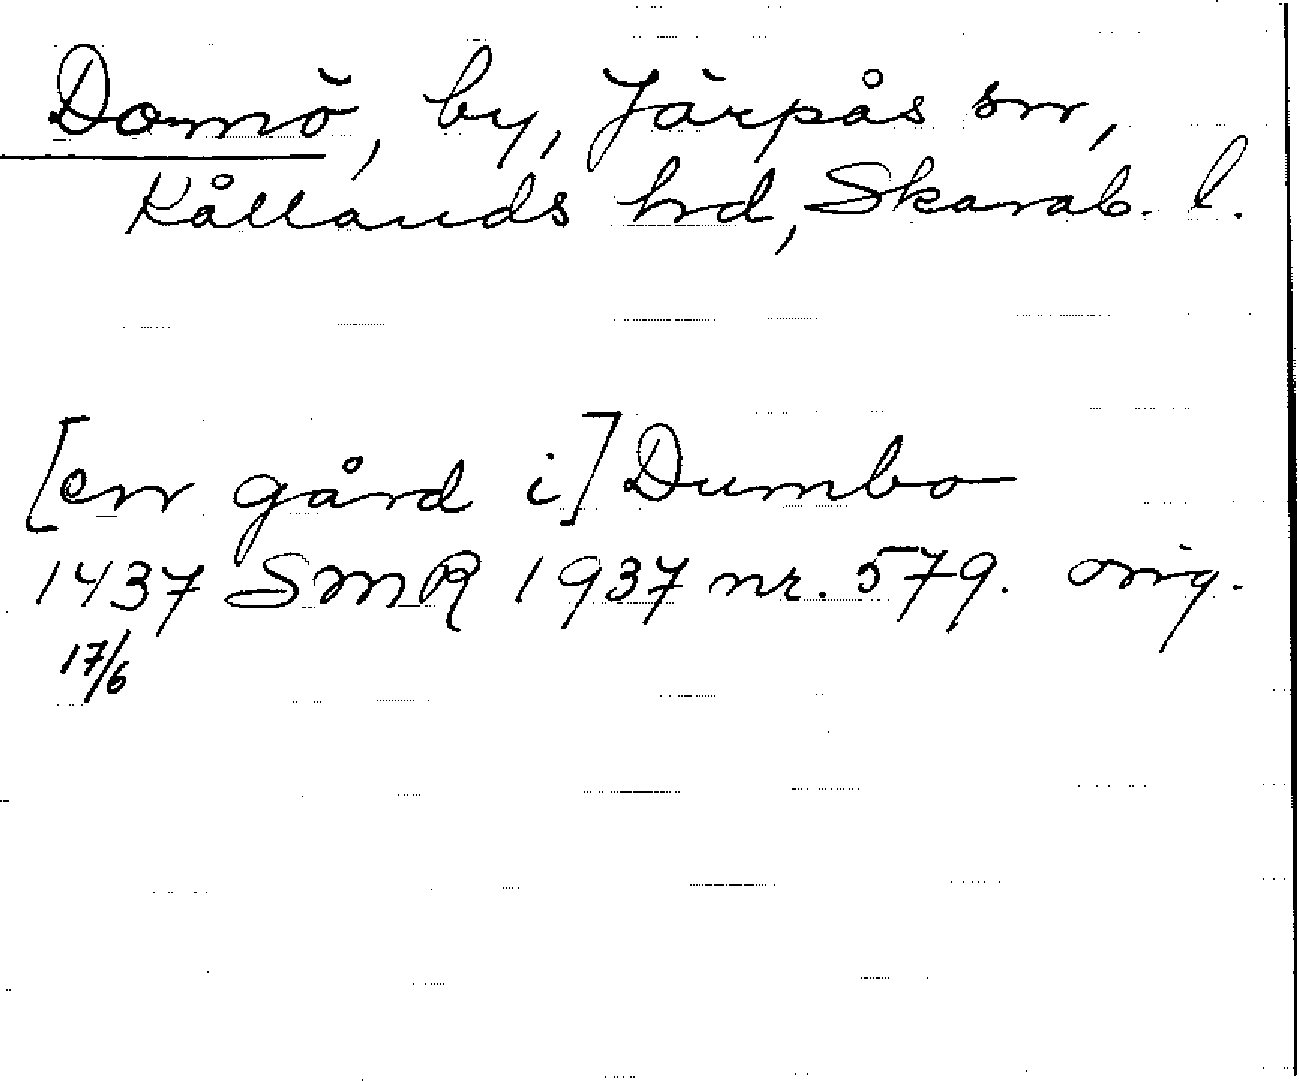 Domö, by, Järpås sn,
Kållands hrd, Skarab. l.
[en gård i] Dumbo
1437 SMR 1937 nr. 579. orig.
17/6